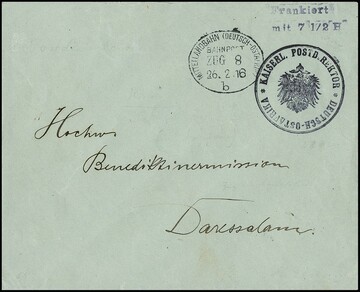 Frankiert
mit 7 1/2 H
MITTELLANDBAHN (DEUTSCH-OSTAFRIKA)
BAHNPOST
ZUG 8
26.2.16
b
* KAISERL. POSTDIREKTOR * DEUTSCH-OSTAFRIKA
Hochw.
Benediktinermission
Daressalam.